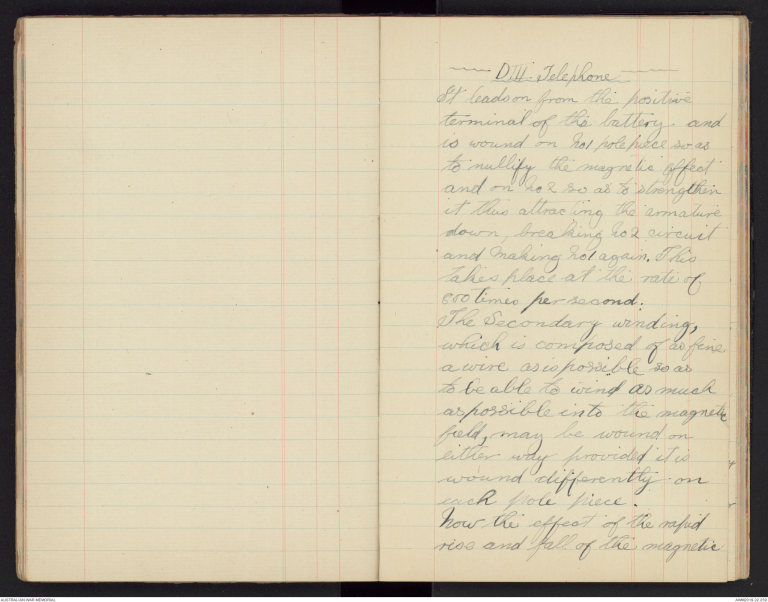 D III Telephone
It leads on from the positive
terminal of the battery and
is wound on No1 pole piece so as
to nullify the magnetic effect
and on No 2 so as to strengthen
it thus attracting the armature
down, breaking No 2 circuit
and making No1 again. This
takes place at the rate of
600 times per second.
The Secondary winding,
which is composed of as fine
a wire as is possible so as
to be able to wind as much
as possible into the magnetic
field, may be wound on
either way provided it is
wound differently on
each pole piece.
Now the effect of the rapid
rise and fall of the magnetic
AUSTRALIAN WAR MEMORIAL